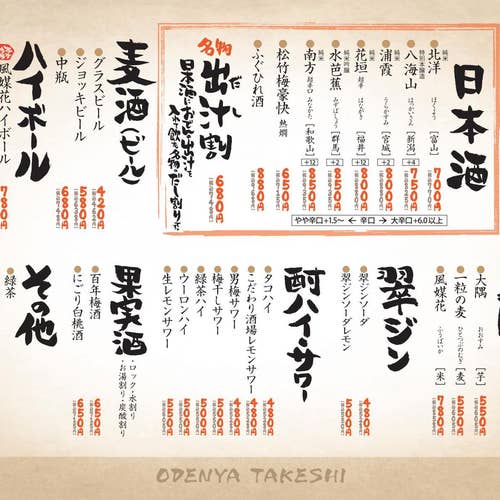 日本酒
純米 北洋 ほくよう [富山] 700円
特別本醸造 八海山 はっかいさん [新潟] +4 750円
純米 浦霞 うらかすみ [宮城] +2 880円
純米 花垣 超辛 はながき [福井] +12 880円
純米吟醸 水芭蕉 みずばしょう [群馬] +2 850円
純米 南方 超辛口 みなかた [和歌山] +12 850円
松竹梅豪快 熱燗 650円
ふぐひれ酒 880円
やや辛口+1.5〜 ← 辛口 → 大辛口+6.0以上
名物 出汁割 だし
日本酒におでん出汁を
入れて飲む名物「だし割り」です
680円
麦酒(ビール)
グラスビール 420円
ジョッキビール 580円
中瓶 680円
ハイボール
風媒花ハイボール 780円
大隅 おおすみ [芋] 550円
一粒の麦 ひとつぶのむぎ [麦] 550円
風媒花 ふうばいか [米] 780円
翠ジン
翠ジンソーダ 480円
翠ジンソーダレモン 500円
酎ハイ・サワー
タコハイ 480円
こだわり酒場レモンサワー 480円
男梅サワー 500円
梅干しサワー 500円
緑茶ハイ 500円
ウーロンハイ 500円
生レモンサワー 550円
果実酒
・ロック・水割り
・お湯割り・炭酸割り
百年梅酒 650円
にごり白桃酒 650円
その他
緑茶
ODENYA TAKESHI